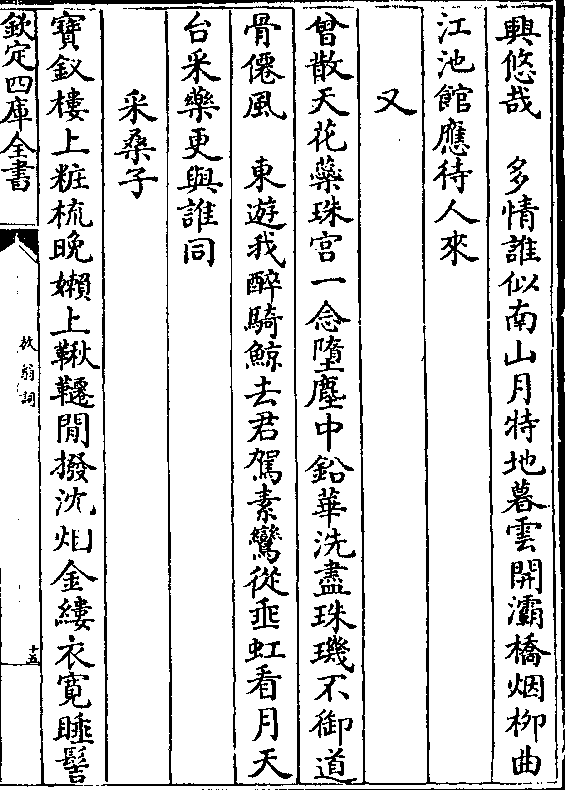 興悠哉　多情誰似南山月特地暮雲開灞橋烟柳曲
江池館應待人來
又
曾散天花蘂珠宮一念墮塵中鉛華洗盡珠璣不御道
骨僊風　東遊我醉騎鯨去君駕素鸞從垂虹看月天
台采藥更與誰同
采桑子
寶釵樓上粧梳晚嬾上鞦韆閒撥沈烟金縷衣寛睡髻
欽定四庫全書
放翁詞
十五